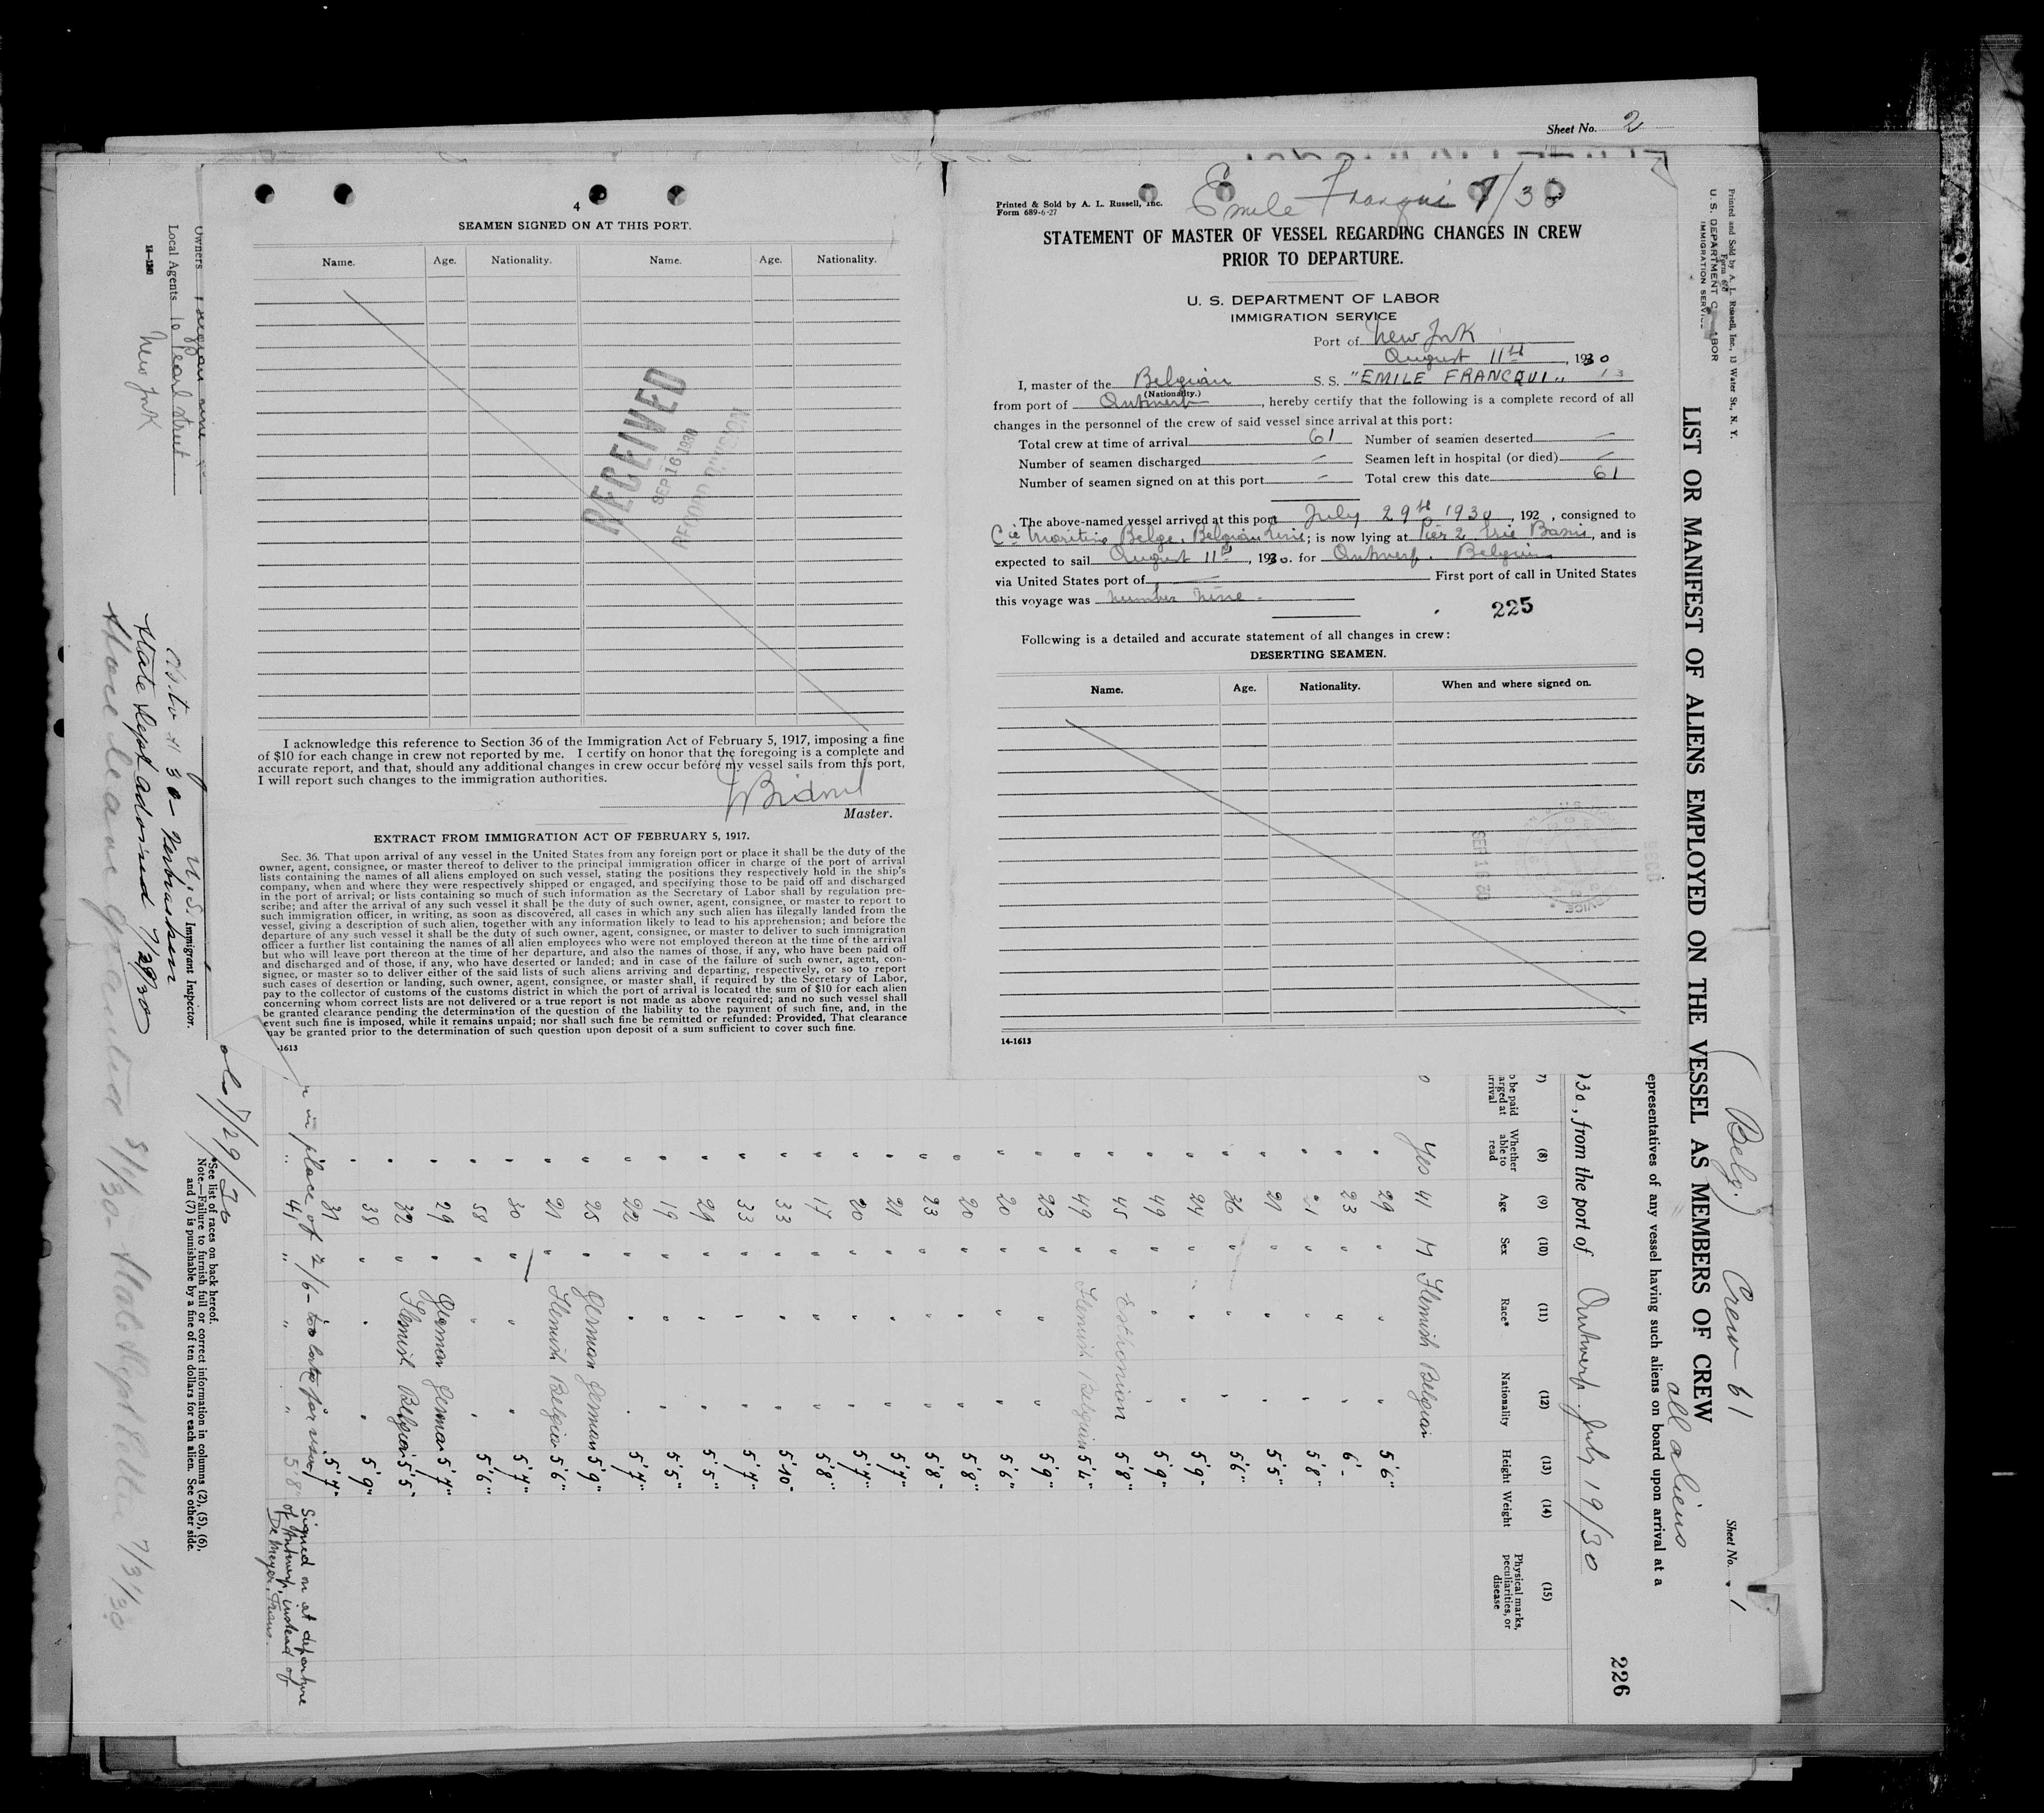 Sheet No. 2
4
SEAMEN SIGNED ON AT THIS PORT.
Name. Age. Nationality. Name. Age. Nationality.
RECEIVED
SEP 16 1930
RECORD DIVISION
I acknowledge this reference to Section 36 of the Immigration Act of February 5, 1917, imposing a fine
of $10 for each change in crew not reported by me. I certify on honor that the foregoing is a complete and
accurate report, and that, should any additional changes in crew occur before my vessel sails from this port,
I will report such changes to the immigration authorities.
Master.
EXTRACT FROM IMMIGRATION ACT OF FEBRUARY 5, 1917.
Sec. 36. That upon arrival of any vessel in the United States from any foreign port or place it shall be the duty of the
owner, agent, consignee, or master thereof to deliver to the principal immigration officer in charge of the port of arrival
lists containing the names of all aliens employed on such vessel, stating the positions they respectively hold in the ship's
company, when and where they were respectively shipped or engaged, and specifying those to be paid off and discharged
in the port of arrival; or lists containing so much of such information as the Secretary of Labor shall by regulation pre-
scribe; and after the arrival of any such vessel it shall be the duty of such owner, agent, consignee, or master to report to
such immigration officer, in writing, as soon as discovered, all cases in which any such alien has illegally landed from the
vessel, giving a description of such alien, together with any information likely to lead to his apprehension; and before the
departure of any such vessel it shall be the duty of such owner, agent, consignee, or master to deliver to such immigration
officer a further list containing the names of all alien employees who were not employed thereon at the time of the arrival
but who will leave port thereon at the time of her departure, and also the names of those, if any, who have been paid off
and discharged and of those, if any, who have deserted or landed; and in case of the failure of such owner, agent, con-
signee, or master so to deliver either of the said lists of such aliens arriving and departing, respectively, or so to report
such cases of desertion or landing, such owner, agent, consignee, or master shall, if required by the Secretary of Labor,
pay to the collector of customs of the customs district in which the port of arrival is located the sum of $10 for each alien
concerning whom correct lists are not delivered or a true report is not made as above required; and no such vessel shall
be granted clearance pending the determination of the question of the liability to the payment of such fine, and, in the
event such fine is imposed, while it remains unpaid; nor shall such fine be remitted or refunded: Provided, That clearance
may be granted prior to the determination of such question upon deposit of a sum sufficient to cover such fine.
-1613
Printed & Sold by A. L. Russell, Inc.
Form 689-6-27
Emile Franqui
STATEMENT OF MASTER OF VESSEL REGARDING CHANGES IN CREW
PRIOR TO DEPARTURE.
U. S. DEPARTMENT OF LABOR
IMMIGRATION SERVICE
Port of New York
August 11th, 1930
I, master of the Belgian S. S. "EMILE FRANCQUI"
(Nationality.)
from port of Antwerp, hereby certify that the following is a complete record of all
changes in the personnel of the crew of said vessel since arrival at this port:
Total crew at time of arrival 61 Number of seamen deserted —
Number of seamen discharged — Seamen left in hospital (or died) —
Number of seamen signed on at this port — Total crew this date 61
The above-named vessel arrived at this port July 29th 1930, 192 , consigned to
Cie Maritime Belge. Belgian Line; is now lying at Pier 2 Erie Basin, and is
expected to sail August 11th, 1930. for Antwerp. Belgium
via United States port of — First port of call in United States
this voyage was number nine -
225
Following is a detailed and accurate statement of all changes in crew:
DESERTING SEAMEN.
Name. Age. Nationality. When and where signed on.
SEP 16 30
14-1613
Printed and Sold by A. L. Russell, Inc., 13 Water St., N. Y.
U. S. DEPARTMENT OF LABOR
IMMIGRATION SERVICE
(Belg.) Crew 61 Sheet No. 1
LIST OR MANIFEST OF ALIENS EMPLOYED ON THE VESSEL AS MEMBERS OF CREW
all aliens
epresentatives of any vessel having such aliens on board upon arrival at a
30, from the port of Antwerp July 19/30
226
(8) (9) (10) (11) (12) (13) (14) (15)
Whether able to read Age Sex Race* Nationality Height Weight Physical marks, peculiarities, or disease
Yes 41 M Flemish Belgian
" 29 " " " 5'6"
" 23 " " " 6'-
" 21 " " " 5'8"
" 27 " " " 5'5"
" 36 " " " 5'6"
" 24 " " " 5'9"
" 49 " " " 5'9"
" 45 " Esthonian 5'8"
" 49 " Flemish Belgian 5'4"
" 23 " " " 5'9"
" 20 " " " 5'6"
" 20 " " " 5'8"
" 23 " " " 5'8"
" 21 " " " 5'7"
" 20 " " " 5'7"
" 17 " " " 5'8"
" 33 " " " 5'10"
" 33 " " " 5'7"
" 29 " " " 5'5"
" 19 " " " 5'5"
" 22 " " " 5'7"
" 25 " German German 5'9"
" 21 " Flemish Belgian 5'6"
" 30 " " " 5'7"
" 58 " " " 5'6"
" 29 " German German 5'7"
" 32 " Flemish Belgian 5'5"
" 38 " " " 5'9"
" 31 5'7"
in place of 2/6 - too late for visa
" 41 " " " 5'8"
Signed on at departure
of Antwerp, instead of
De Meyer, Frans.
ols 7/29/30
*See list of races on back hereof.
Note.—Failure to furnish full or correct information in columns (2), (5), (6),
and (7) is punishable by a fine of ten dollars for each alien. See other side.
Owners
Local Agents 10 Pearl Street
New York
U. S. Immigrant Inspector.
State Dept advised 7/29/30
Shore leave granted 8/1/30 - State Dept letter 7/31/30